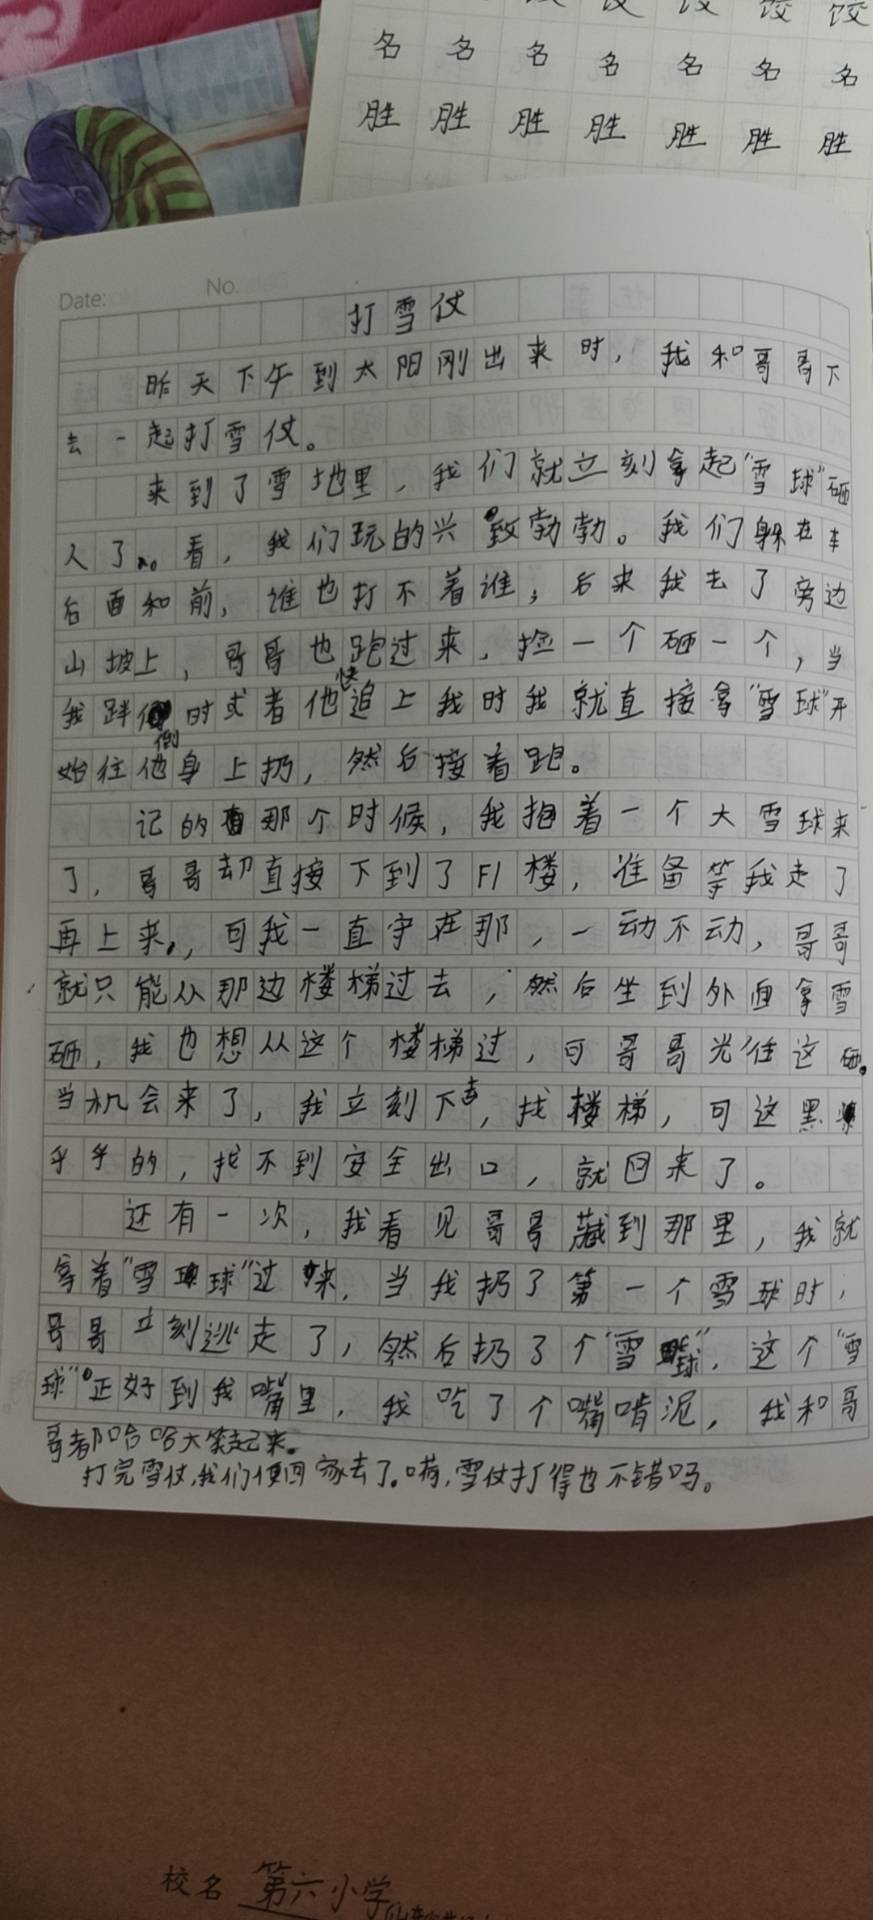 饺 饺 饺 饺
名 名 名 名 名 名 名
胜 胜 胜 胜 胜 胜 胜
Date: No.
打雪仗
昨天下午到太阳刚出来时，我和哥哥下
去一起打雪仗。
来到了雪地里，我们就立刻拿起“雪球”砸
人了。看，我们玩的兴致勃勃。我们躲在车
后面和前，谁也打不着谁，后来我去了旁边
山坡上，哥哥也跑过来，捡一个砸一个，当
我跘倒时或者他快追上我时我就直接拿“雪球”开
始往他身上扔，然后接着跑。
记的那个时候，我抱着一个大雪球来
了，哥哥却直接下到了F1楼，准备等我走了
再上来，可我一直守在那，一动不动，哥哥
就只能从那边楼梯过去，然后坐到外面拿雪
砸，我也想从这个楼梯过，可哥哥光往这砸。
当机会来了，我立刻下去，找楼梯，可这黑
乎乎的，找不到安全出口，就回来了。
还有一次，我看见哥哥藏到那里，我就
拿着“雪球”过来，当我扔了第一个雪球时，
哥哥立刻逃走了，然后扔了个“雪球”，这个“雪
球”正好到我嘴里，我吃了个嘴啃泥，我和哥
哥都哈哈大笑起来。
打完雪仗，我们便回家去了。嗬，雪仗打得也不错吗。
校名 第六小学